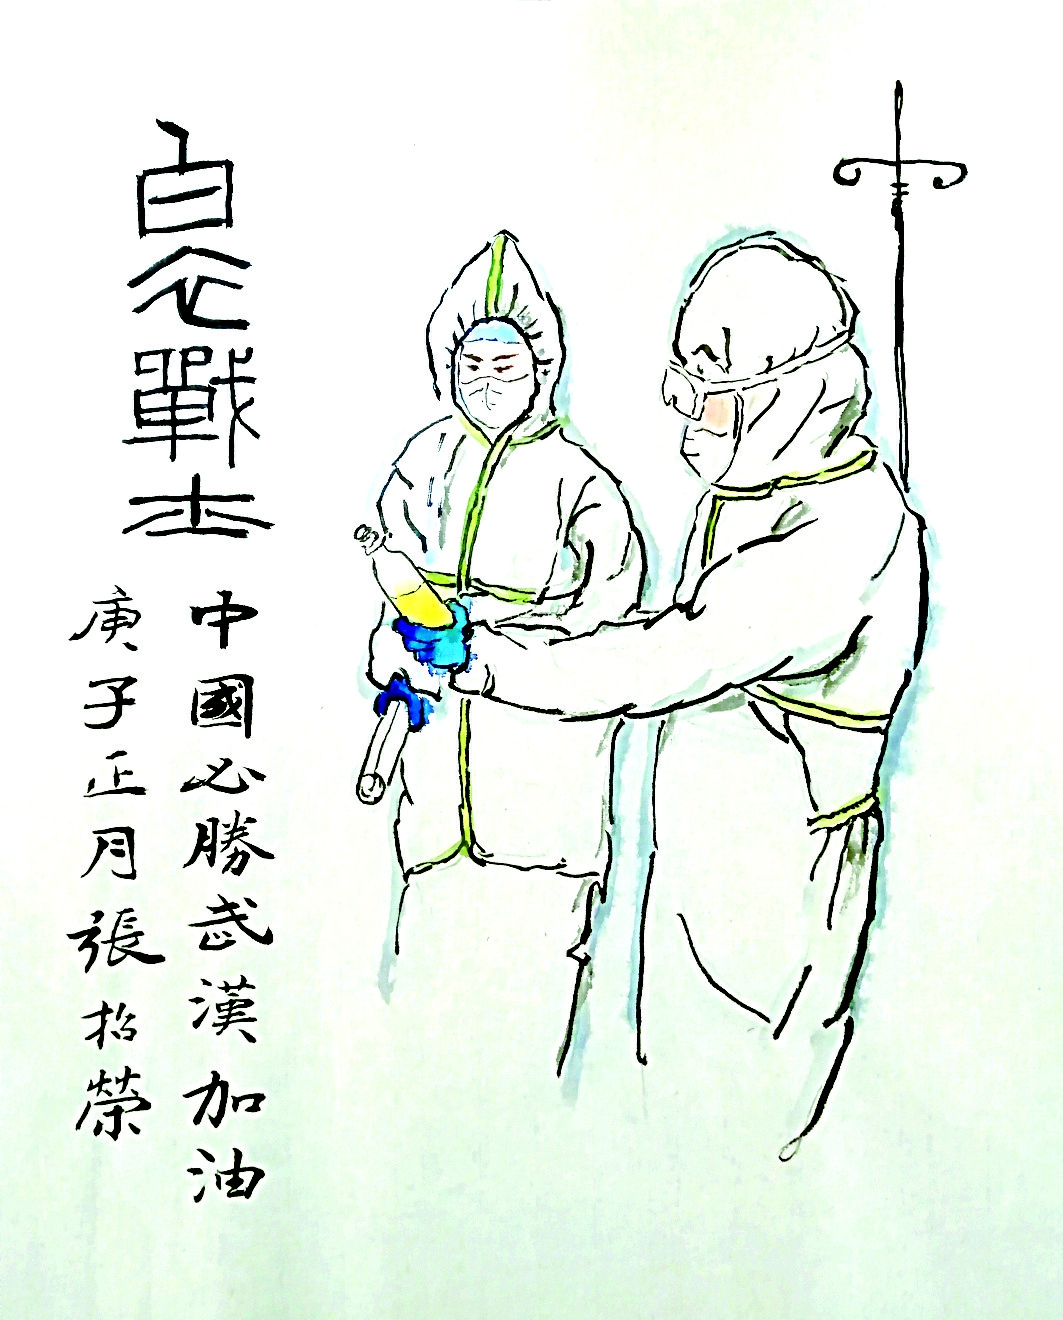 白衣戰士
中國必勝武漢加油
庚子正月張招榮